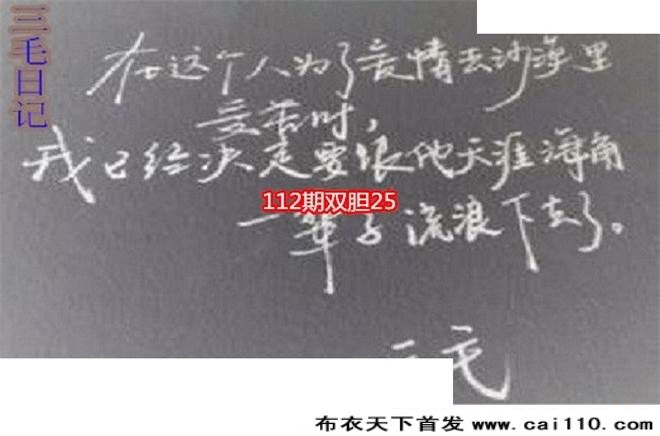 三毛日记
在这个人为了爱情去沙漠里
受苦时，
我已经决定要跟他天涯海角
112期双胆25
一辈子流浪下去了。
三毛
布衣天下首发 www.cai110.com